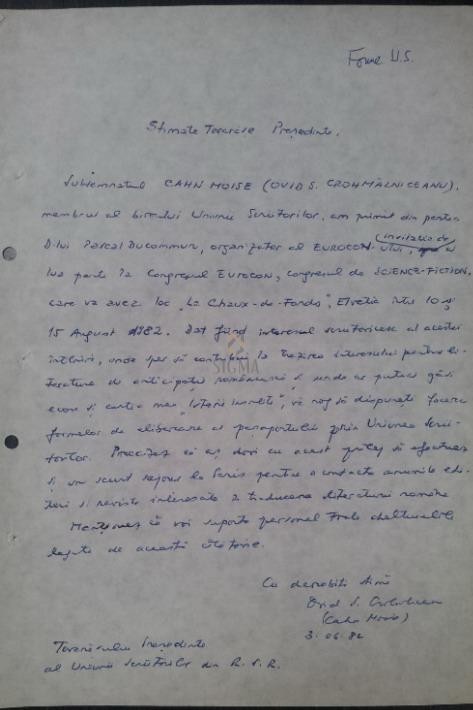 Forme U.S.
Stimate Tovarășe Președinte,
Subsemnatul CAHN MOISE (OVID S. CROHMĂLNICEANU),
membru al biroului Uniunii Scriitorilor, am primit din partea
D-lui Pascal Ducommun, organizator al EUROCON-ului, invitația de a
lua parte la Congresul Eurocon, congresul de SCIENCE-FICTION,
care va avea loc "La Chaux-de-Fonds", Elveția între 10 și
15 August 1982. Dat fiind interesul scriitoricesc al acestei
întîlniri, unde sper să contribui la trezirea interesului pentru li-
teratura de anticipație românească și unde aș putea găsi
ecou și cartea mea "Istorii insolite", vă rog să dispuneți facerea
formelor de eliberare a pașaportului prin Uniunea Scrii-
torilor. Precizez că aș dori cu acest prilej să efectuez
și un scurt sejour la Paris pentru a contacta anumite edi-
turi și reviste interesate în traducerea literaturii române
Menționez că voi suporta personal toate cheltuielile
legate de această călătorie.
SIGMA
Cu deosebită stimă
Ovid S. Crohmălniceanu
(Cahn Moise)
3.06.82
Tovarășului Președinte
al Uniunii Scriitorilor din R.S.R.